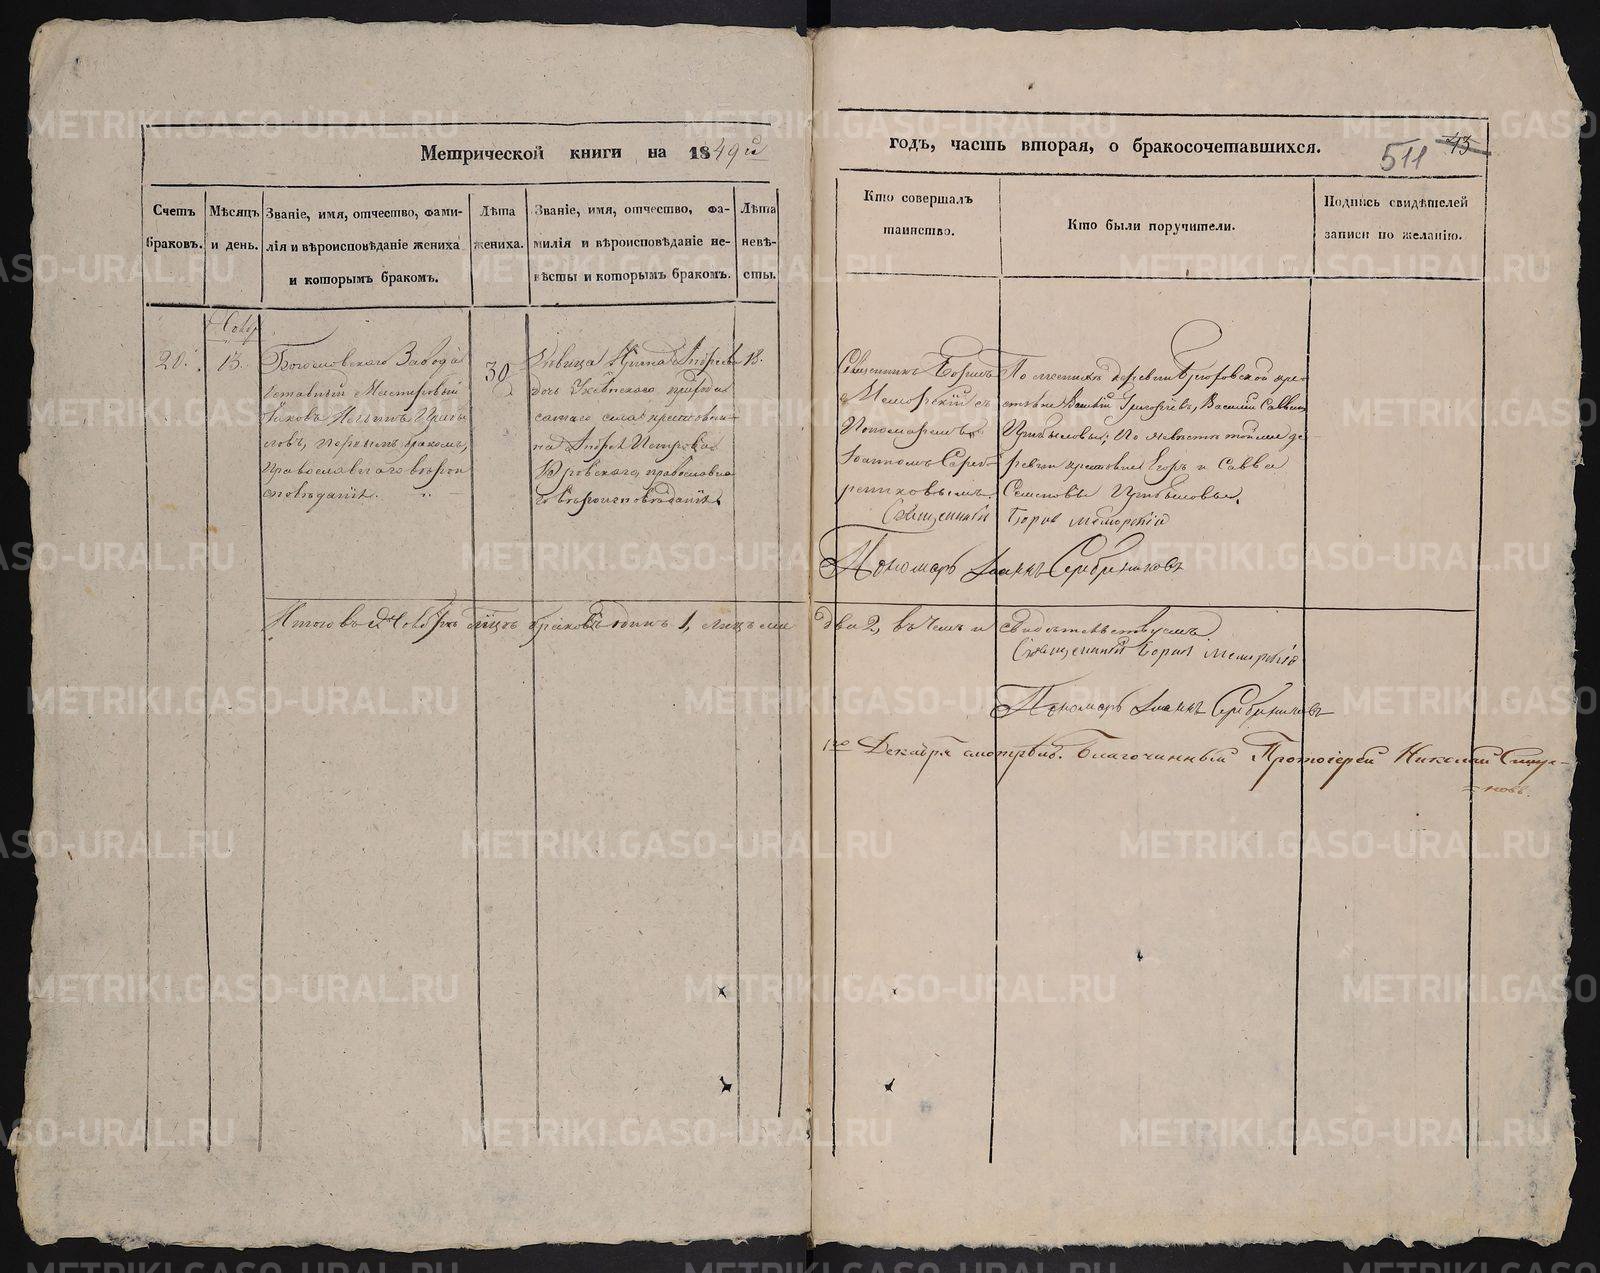 Метрической книги на 1849й
годъ, часть вторая, о бракосочетавшихся.
511
43
Счетъ браковъ.
Мѣсяцъ и день.
Званіе, имя, отчество, фами-
лія и вѣроисповѣданіе жениха
и которымъ бракомъ.
Лѣта жениха.
Званіе, имя, отчество, фа-
милія и вѣроисповѣданіе не-
вѣсты и которымъ бракомъ.
Лѣта невѣ-
сты.
Кто совершалъ
таинство.
Кто были поручители.
Подпись свидѣтелей
записи по желанію.
20.
13.
Богословскаго Завода
отставный Мастеровый
Прибы-
ловъ, первымъ бракомъ,
Православнаго вѣрои-
сповѣданія.
30
Дѣвица Андреева
дочь
самаго села крестьяни-
на Андрея Петрова
православна-
го вѣроисповѣданія.
18.
Священникъ Борисъ
Меморскій съ
Пономаремъ
Іоанномъ Сереб-
рениковымъ.
По женихѣ деревни Григоровской кре-
стьяне Григорьевъ, Василій Саввинъ
Прибыловы; По невѣстѣ той же де-
ревни крестьяне Егоръ и Савва
Семеновы Прибыловы.
Священникъ Борисъ Меморскій
Пономарь Іоаннъ Серебрениковъ
Итого въ мцѣ браковъ одинъ 1, лицъ два 2, въ чемъ и свидѣтельствуемъ
Священникъ Борисъ Меморскій
Пономарь Іоаннъ Серебрениковъ
Декабря смотрѣлъ. Благочинный Протоіерей Николай
METRIKI.GASO-URAL.RU